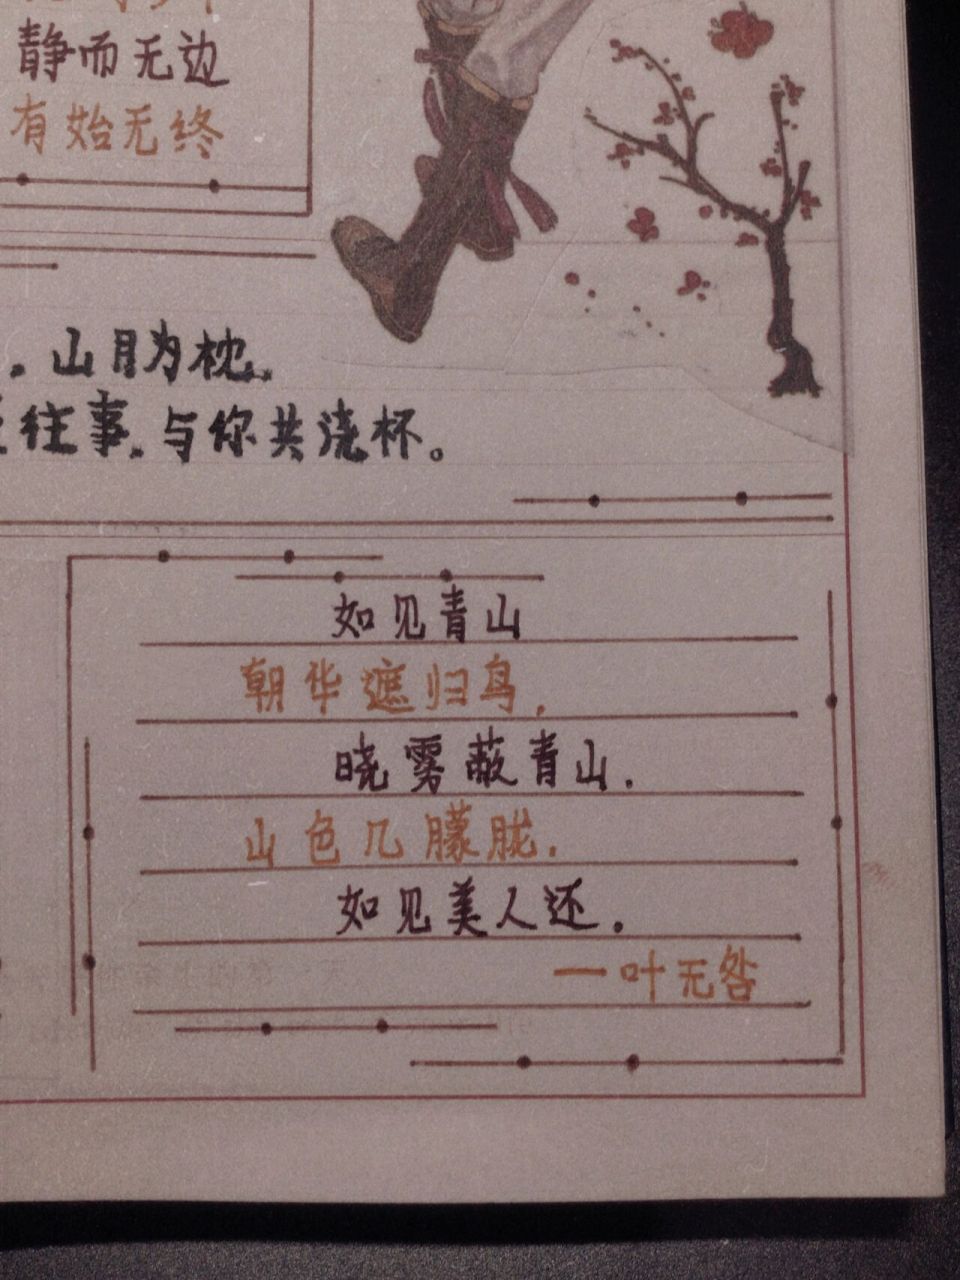 静而无边
有始无终
山月为枕.
往事.与你共浇杯。
如见青山
朝华遮归鸟,
晓雾蔽青山.
山色几朦胧.
如见美人还.
一叶无咎